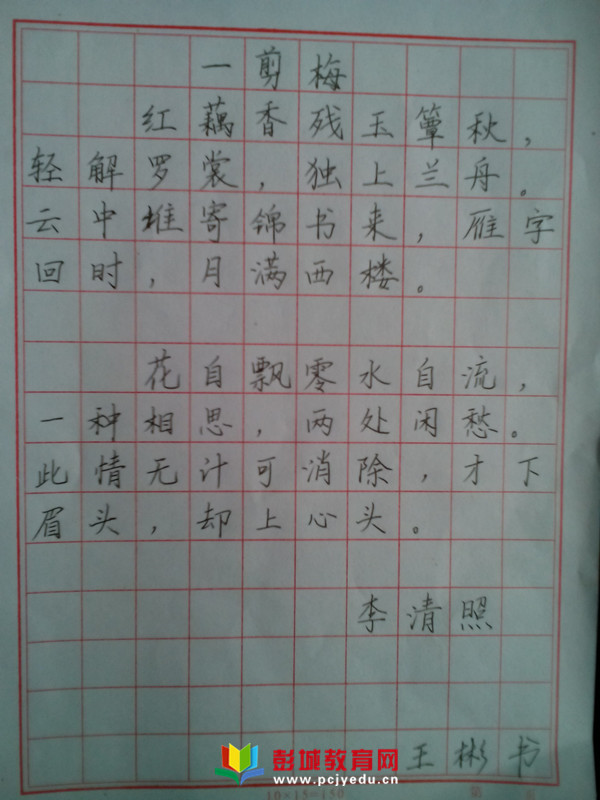 一剪梅
红藕香残玉簟秋，
轻解罗裳，独上兰舟。
云中堆寄锦书来，雁字
回时，月满西楼。
花自飘零水自流，
一种相思，两处闲愁。
此情无计可消除，才下
眉头，却上心头。
李清照
王彬书
彭城教育网
www.pcjyedu.cn
10×15=150
第